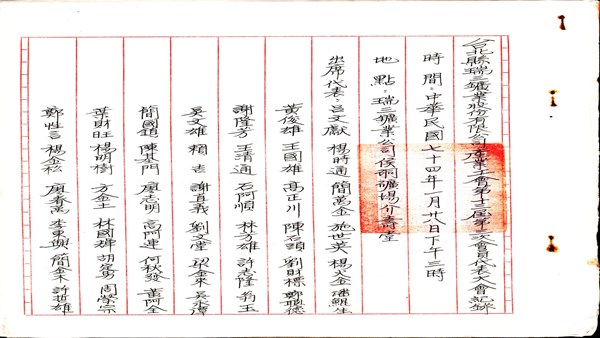 台北縣瑞三礦業股份有限公司產業工會第十三屆第一次會員代表大會記錄
時間:中華民國七十四年一月廿八日下午三時
地點:瑞三礦業公司侯硐礦場介壽堂
出席代表:呂文獻 楊時通 簡萬金 施世英 楊火金 潘鯤生
黃俊雄 王國雄 高正川 陳石頭 劉財標
謝隆芳 王清通 石阿順 林方雄 許志隆 翁玉
吳文雄 賴志 謝直義 劉文堂 梁金來 吳永澤
簡國鎮 陳基門 廖志明 高門連 何秋發 黃阿全
葉財旺 楊明樹 方金土 林國雄 胡定勇 周榮宗
鄭 楊金 廖春萬 李東興 簡金木 許哲雄